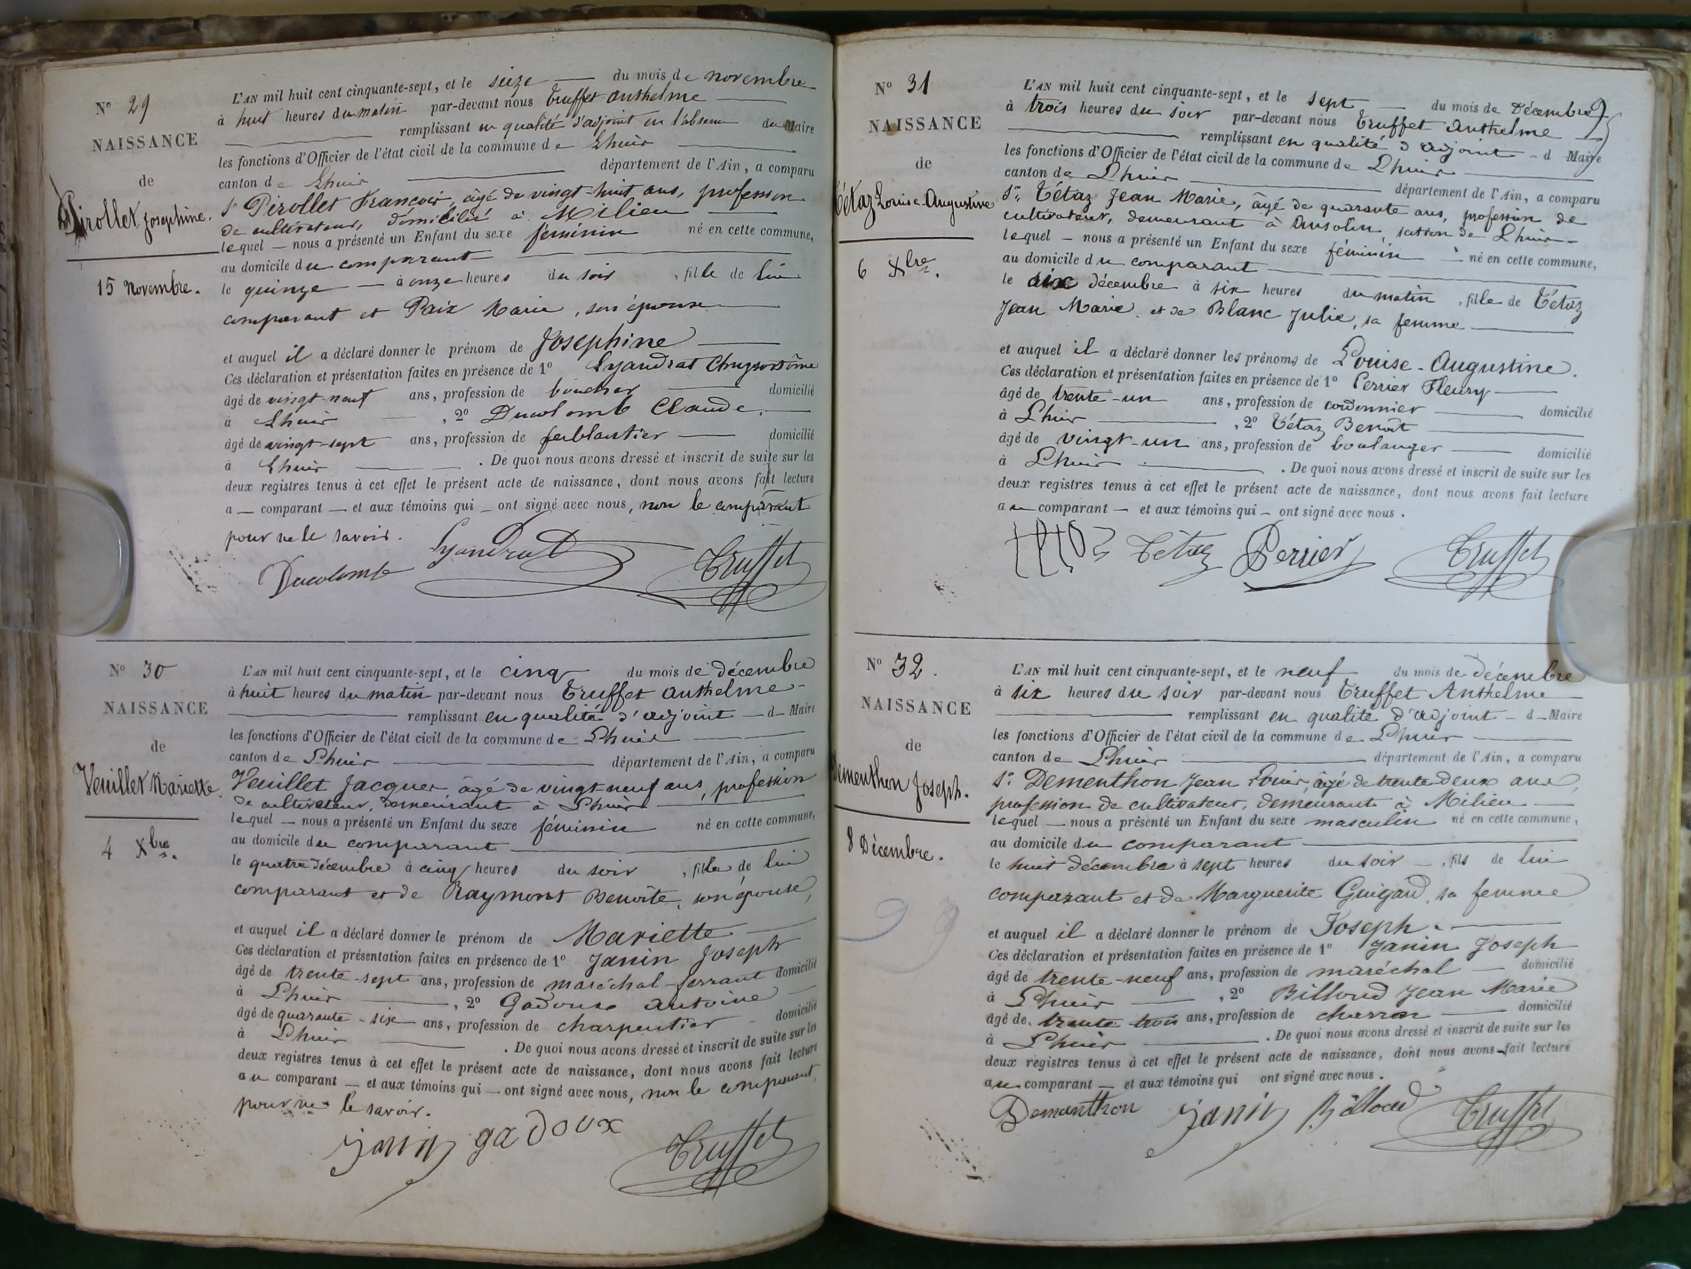 N° 29
NAISSANCE
de
Pirollet Josephine.
15 Novembre.
L'AN mil huit cent cinquante-sept, et le seize du mois de novembre
à huit heures du matin par-devant nous Truffet Anthelme
remplissant en qualité d'adjoint en l'absence du Maire
les fonctions d'Officier de l'état civil de la commune de Lhuis
canton de Lhuis département de l'Ain, a comparu
Sr Pirollet François, âgé de vingt-huit ans, profession
de cultivateur, domicilié à Milieu
lequel nous a présenté un Enfant du sexe féminin né en cette commune,
au domicile du comparant
le quinze à onze heures du soir, fille de lui
comparant et Paix Marie, son épouse
et auquel il a déclaré donner le prénom de Josephine
Ces déclaration et présentation faites en présence de 1° Lyandrat Chrysostôme
âgé de vingt-neuf ans, profession de boucher domicilié
à Lhuis, 2° Ducolomb Claude,
âgé de vingt-sept ans, profession de ferblantier domicilié
à Lhuis. De quoi nous avons dressé et inscrit de suite sur les
deux registres tenus à cet effet le présent acte de naissance, dont nous avons fait lecture
a comparant et aux témoins qui ont signé avec nous, non le comparant
pour ne le savoir.
Ducolomb Lyandrat Truffet
N° 30
NAISSANCE
de
Veuillet Mariette.
4 Xbre.
L'AN mil huit cent cinquante-sept, et le cinq du mois de décembre
à huit heures du matin par-devant nous Truffet Anthelme
remplissant en qualité d'adjoint d Maire
les fonctions d'Officier de l'état civil de la commune de Lhuis
canton de Lhuis département de l'Ain, a comparu
Veuillet Jacques, âgé de vingt neuf ans, profession
de cultivateur, demeurant à Lhuis
lequel nous a présenté un Enfant du sexe féminin né en cette commune,
au domicile du comparant
le quatre décembre à cinq heures du soir, fille de lui
comparant et de Raymont Benoîte, son épouse,
et auquel il a déclaré donner le prénom de Mariette
Ces déclaration et présentation faites en présence de 1° Janin Joseph
âgé de trente-sept ans, profession de maréchal-ferrant domicilié
à Lhuis, 2° Gadoux Antoine
âgé de quarante-six ans, profession de charpentier domicilié
à Lhuis. De quoi nous avons dressé et inscrit de suite sur les
deux registres tenus à cet effet le présent acte de naissance, dont nous avons fait lecture
au comparant et aux témoins qui ont signé avec nous, non le comparant,
pour ne le savoir.
janin gadoux Truffet
N° 31
NAISSANCE
de
Tétaz Louise-Augustine
6 Xbre.
L'AN mil huit cent cinquante-sept, et le sept du mois de Décembre
à trois heures du soir par-devant nous Truffet Anthelme
remplissant en qualité d'adjoint d Maire
les fonctions d'Officier de l'état civil de la commune de Lhuis
canton de Lhuis département de l'Ain, a comparu
Sr Tétaz Jean Marie, âgé de quarante ans, profession de
cultivateur, demeurant à Ansolin, section de Lhuis
lequel nous a présenté un Enfant du sexe féminin né en cette commune,
au domicile du comparant
le six décembre à six heures du matin, fille de Tétaz
Jean Marie et de Blanc Julie, sa femme
et auquel il a déclaré donner les prénoms de Louise-Augustine.
Ces déclaration et présentation faites en présence de 1° Perrier Fleury
âgé de trente-un ans, profession de cordonnier domicilié
à Lhuis, 2° Tétaz Benoît
âgé de vingt-un ans, profession de boulanger domicilié
à Lhuis. De quoi nous avons dressé et inscrit de suite sur les
deux registres tenus à cet effet le présent acte de naissance, dont nous avons fait lecture
au comparant et aux témoins qui ont signé avec nous.
Tétaz Perrier Truffet
N° 32.
NAISSANCE
de
Dementhon Joseph.
8 Décembre.
L'AN mil huit cent cinquante-sept, et le neuf du mois de décembre
à six heures du soir par-devant nous Truffet Anthelme
remplissant en qualité d'adjoint d Maire
les fonctions d'Officier de l'état civil de la commune de Lhuis
canton de Lhuis département de l'Ain, a comparu
Sr Dementhon Jean Louis, âgé de trente deux ans,
profession de cultivateur, demeurant à Milieu
lequel nous a présenté un Enfant du sexe masculin né en cette commune,
au domicile du comparant
le huit décembre à sept heures du soir, fils de lui
comparant et de Marguerite Guigard, sa femme
et auquel il a déclaré donner le prénom de Joseph.
Ces déclaration et présentation faites en présence de 1° Janin Joseph
âgé de trente-neuf ans, profession de maréchal domicilié
à Lhuis, 2° Billoud Jean Marie
âgé de trente trois ans, profession de charron domicilié
à Lhuis. De quoi nous avons dressé et inscrit de suite sur les
deux registres tenus à cet effet le présent acte de naissance, dont nous avons fait lecture
au comparant et aux témoins qui ont signé avec nous.
Dementhon janin Billoud Truffet